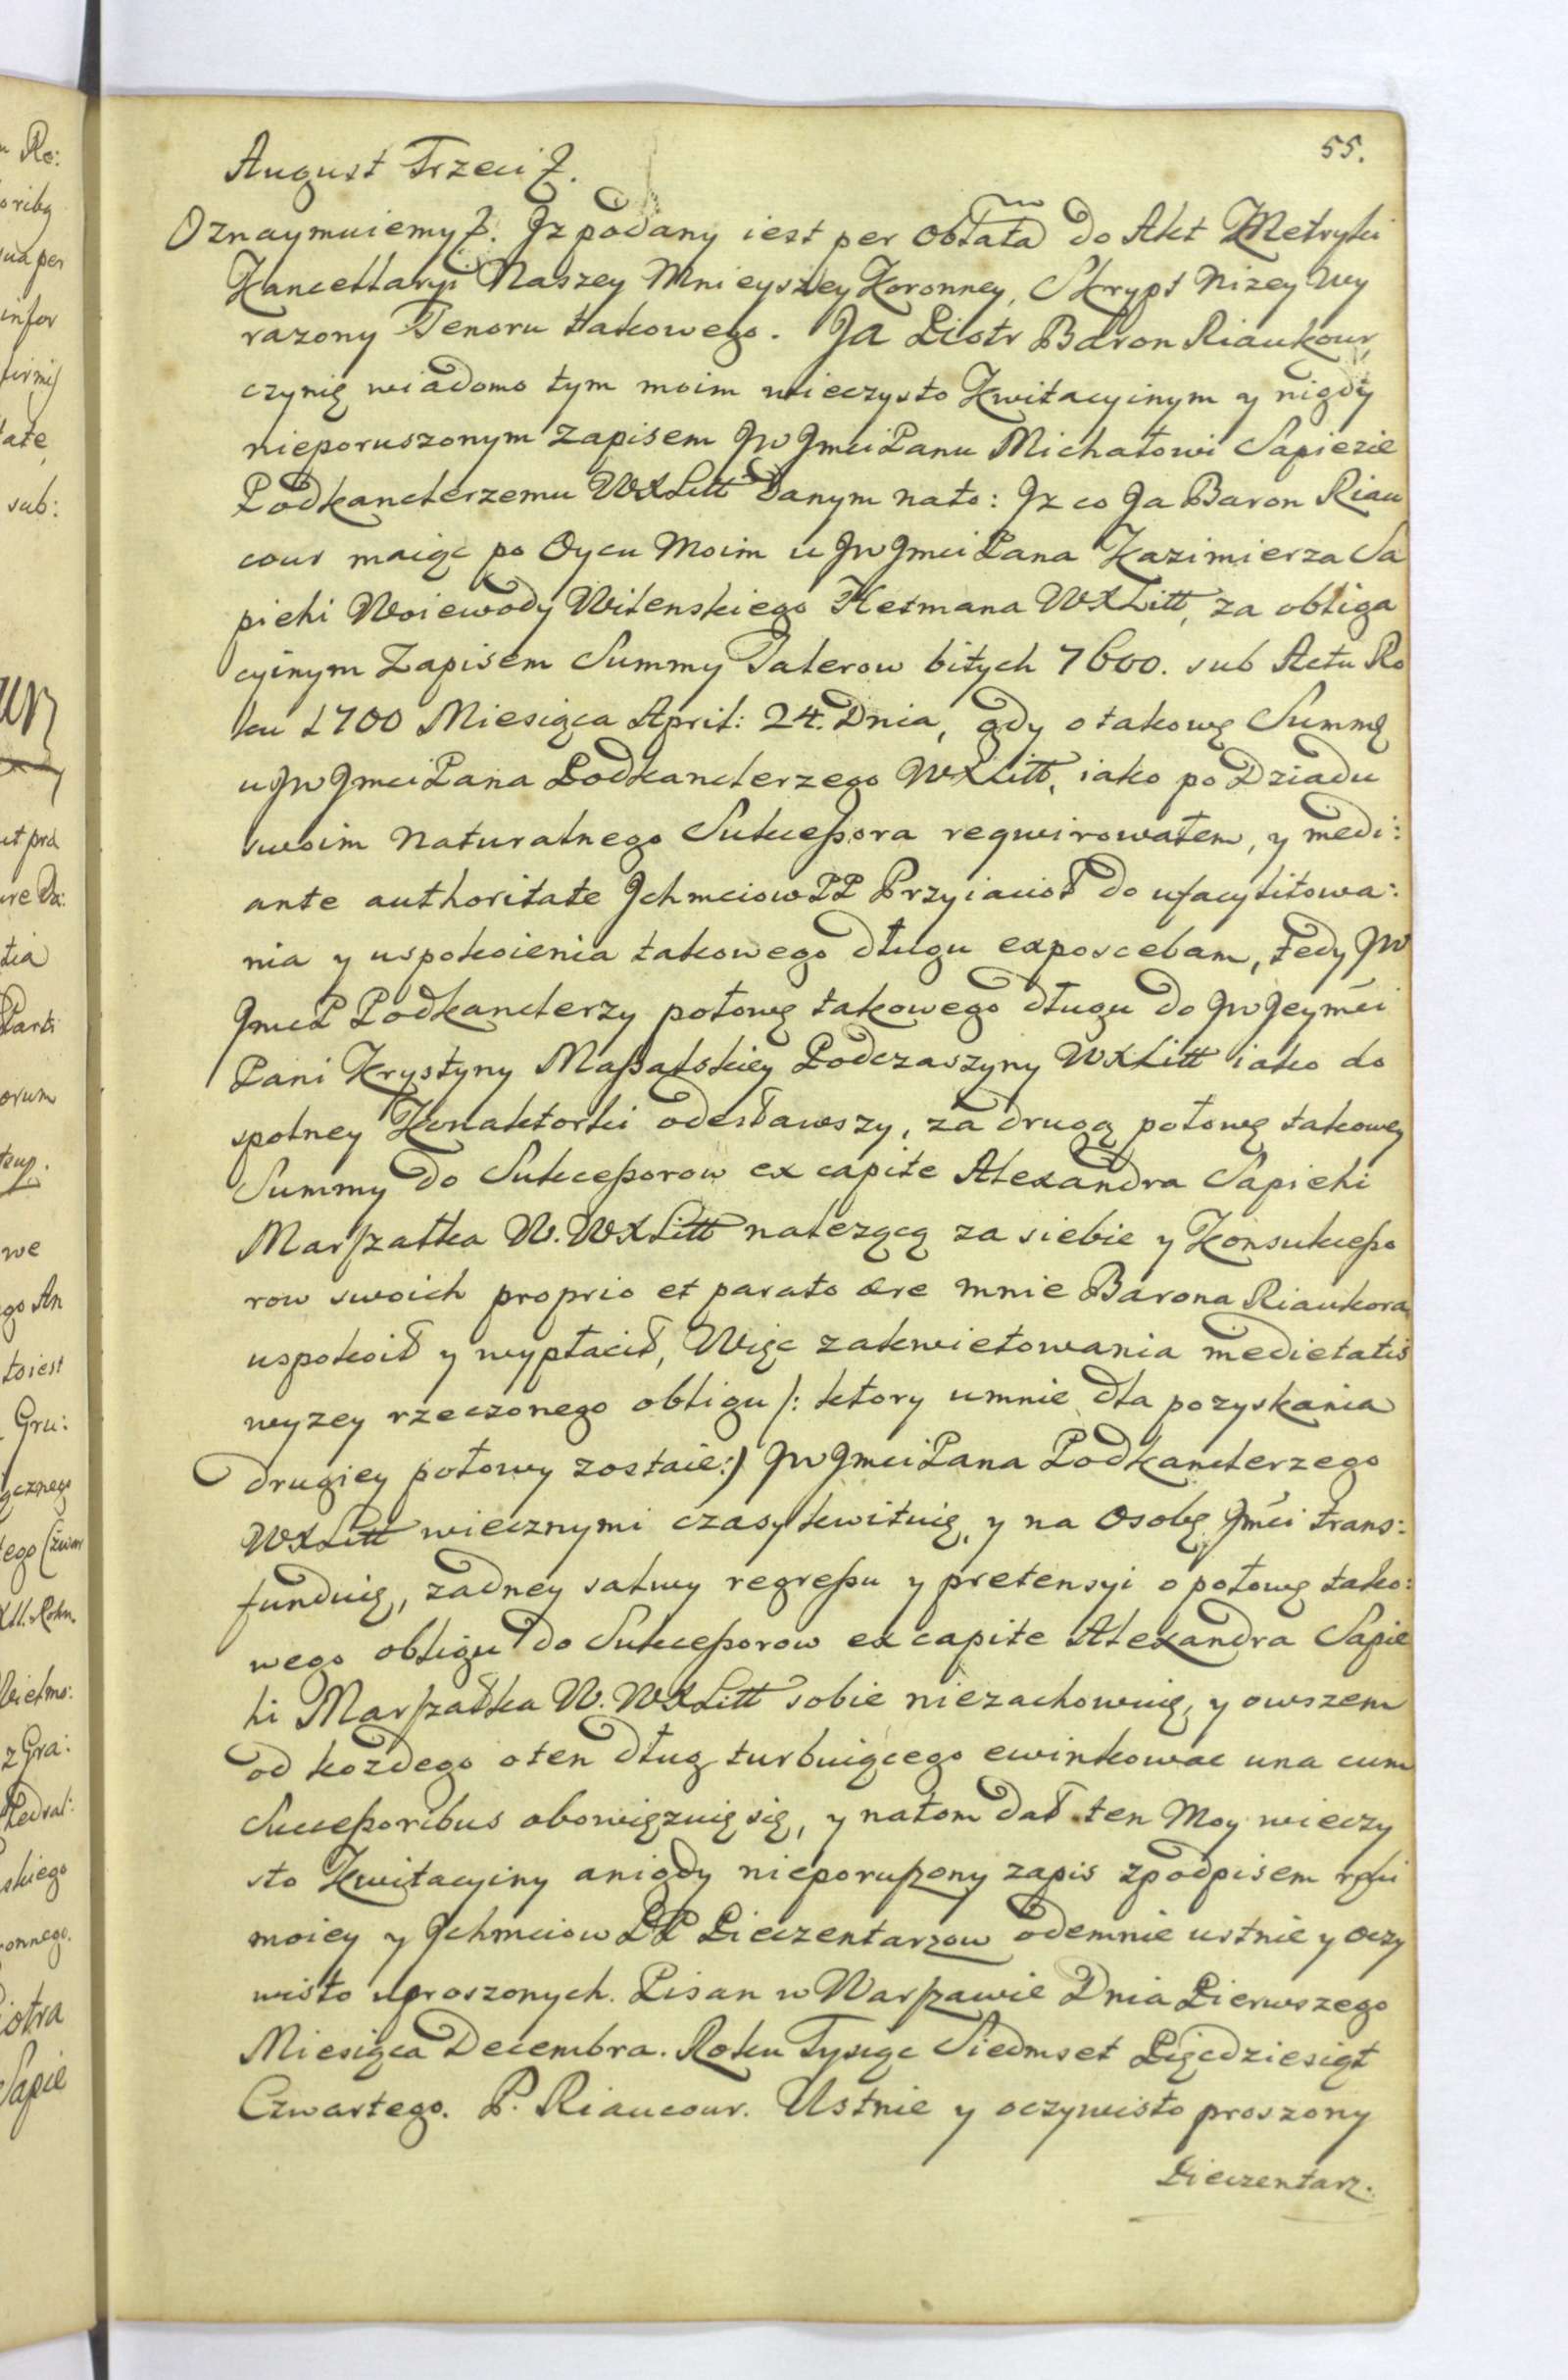 55.
August Trzeci &.
Oznaymuiemy &. Jz podany iest per obłatã do Akt Metryki
Kancellaryi Naszey Mnieyszey Koronney, Skrypt nizey wy
razony Tenoru takowego. Ja Piotr Baron Riaukour,
czynię wiadomo tym moim wieczysto Kwitacyinym y nigdy
nieporuszonym zapisem JW Jmci Panu Michałowi Sapiezie
Podkanclerzemu WXLitt danym nato: Jz co Ja Baron Riau
cour maiąc po Oycu Moim u JW Jmci Pana Kazimierza Sa
piehi Woiewody Wilenskiego Hetmana WXLitt, za obliga
cyinym Zapisem Summy Talerow bitych 7600. sub Actu Ro
ku 1700 Miesiąca April: 24. Dnia, gdy o takowę Summę
u JW Jmci Pana Podkanclerzego WXLitt, iako po Dziadu
swoim naturalnego Sukceßora reqwirowałem, y medi:
ante authoritate Jchmciow PP Przyiacioł do ufacylitowa:
nia y uspokoienia takowego długu exposcebam, tedy JW
JmcP Podkanclerzy połowę takowego długu do JW Jeymći
Pani Krystyny Maßalskiey Podczaszyny WXLitt iako do
spolney Konaktorki odesławszy, za drugą połowę takowey
Summy do Sukceßorow ex capite Alexandra Sapiehi
Marszałka W. WXLitt nalezącą za siebie y Konsukceßo
row swoich proprio et parato ære mnie Barona Riaukora
uspokoił y wypłacił, Więc zakwietowania medietatis
wyzey rzeczonego obligu /: ktory umnie dla pozyskania
drugiey połowy zostaie:/ JW Jmci Pana Podkanclerzego
WXLitt wiecznymi czasy kwituię, y na Osobę Jmći trans:
funduię, zadney salwy regreßu y pretensyi o połowę tako:
wego obligu do Sukceßorow ex capite Alexandra Sapie
hi Marszałka W. WXLitt sobie niezachowuię, y owszem
od kozdego oten dług turbuiącego ewinkowac una cum
Succeßoribus obowięzuię się, y natom dał ten Moy wieczy
sto Kwitacyiny anigdy nieporuszony zapis zpodpisem ręki
moiey y Jchmciow PP Pieczentarzow odemnie ustnie y oczy
wisto uproszonych. Pisan w Warszawie Dnia Pierwszego
Miesiąca Decembra. Roku Tysiąc Siedmset Pięcdziesiąt
Czwartego. P. Riaucour. Ustnie y oczywisto proszony
Pieczentarz.